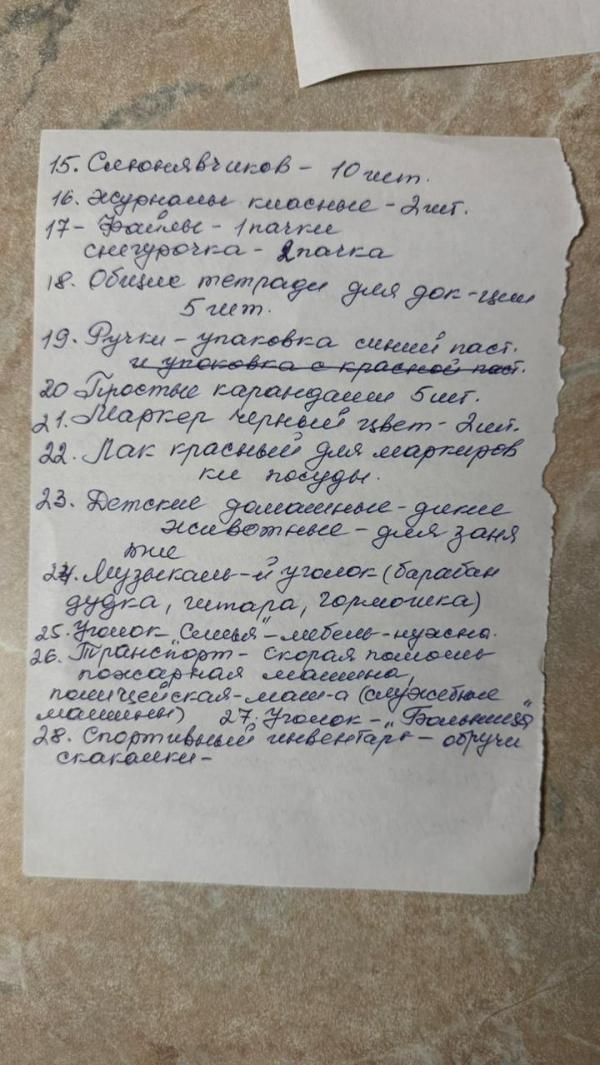 15. Слюнявчиков - 10 шт.
16. Журналы класные - 2 шт.
17 - Файлы - 1 пачки
снегурочка - 2 пачка
18. Общие тетради для док-ции
5 шт.
19. Ручки - упаковка синий паст.
и упаковка с красной паст.
20 Простые карандаши 5 шт.
21. Маркер черный цвет - 2 шт.
22. Лак красный для маркиров
ки посуды.
23. Детские домашные - дикие
животные - для заня
тие
24. Музыкаль-й уголок (барабан
дудка, гитара, гормошка)
25. Уголок "Семья" - мебель - нужна.
26. Транспорт - скорая помощь
пожарная машина,
полицейская - маш-а (служебные
машины) 27. Уголок - "Больница"
28. Спортивный инвентарь - обручи
скакалки -